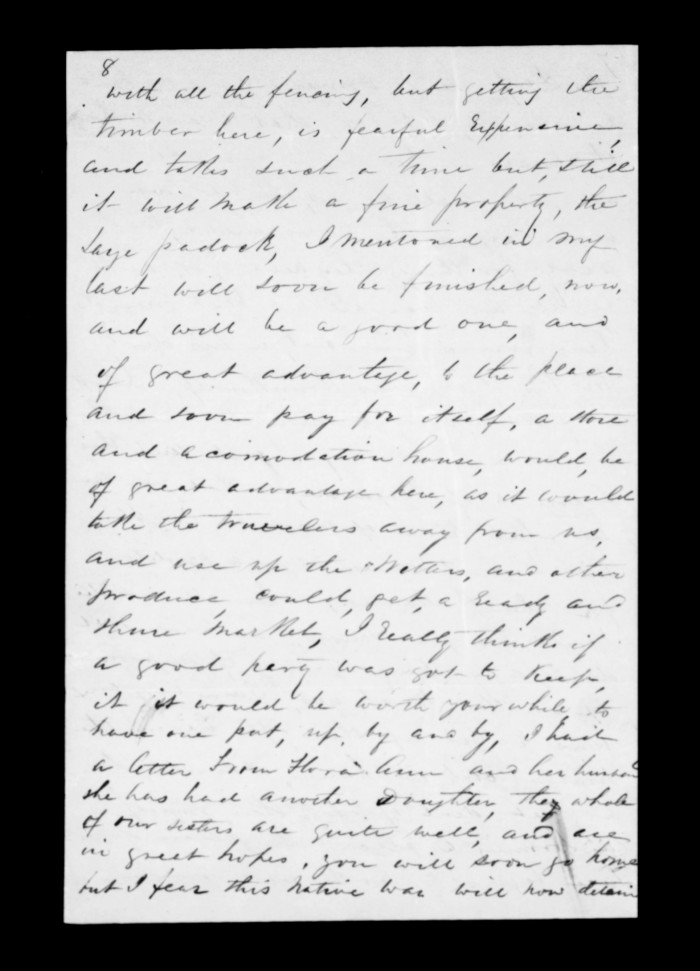 8
with all the fencing, but getting the
timber here, is fearful Expensive,
and takes such a time but, still
it will make a fine property, the
Large padock, I mentoned in my
last will soon be finished, now,
and will be a good one, and
of great advantage, to the place
and soon pay for itself, a store
and acomodation house, would, be
of great advantage here, as it would
take the travelers away from us,
and use up the Wethers, and other
produce, could, get, a Ready and
shure Market, I Really think if
a good party was got to keep,
it it would be worth your while to
have one put, up, by and by, I had
a letter From Flora Ann and her husband
she has had another Daughter, they whole
of our sisters are quite well, and are
in great hopes, you will soon go home
but I fear this Native War will now detain